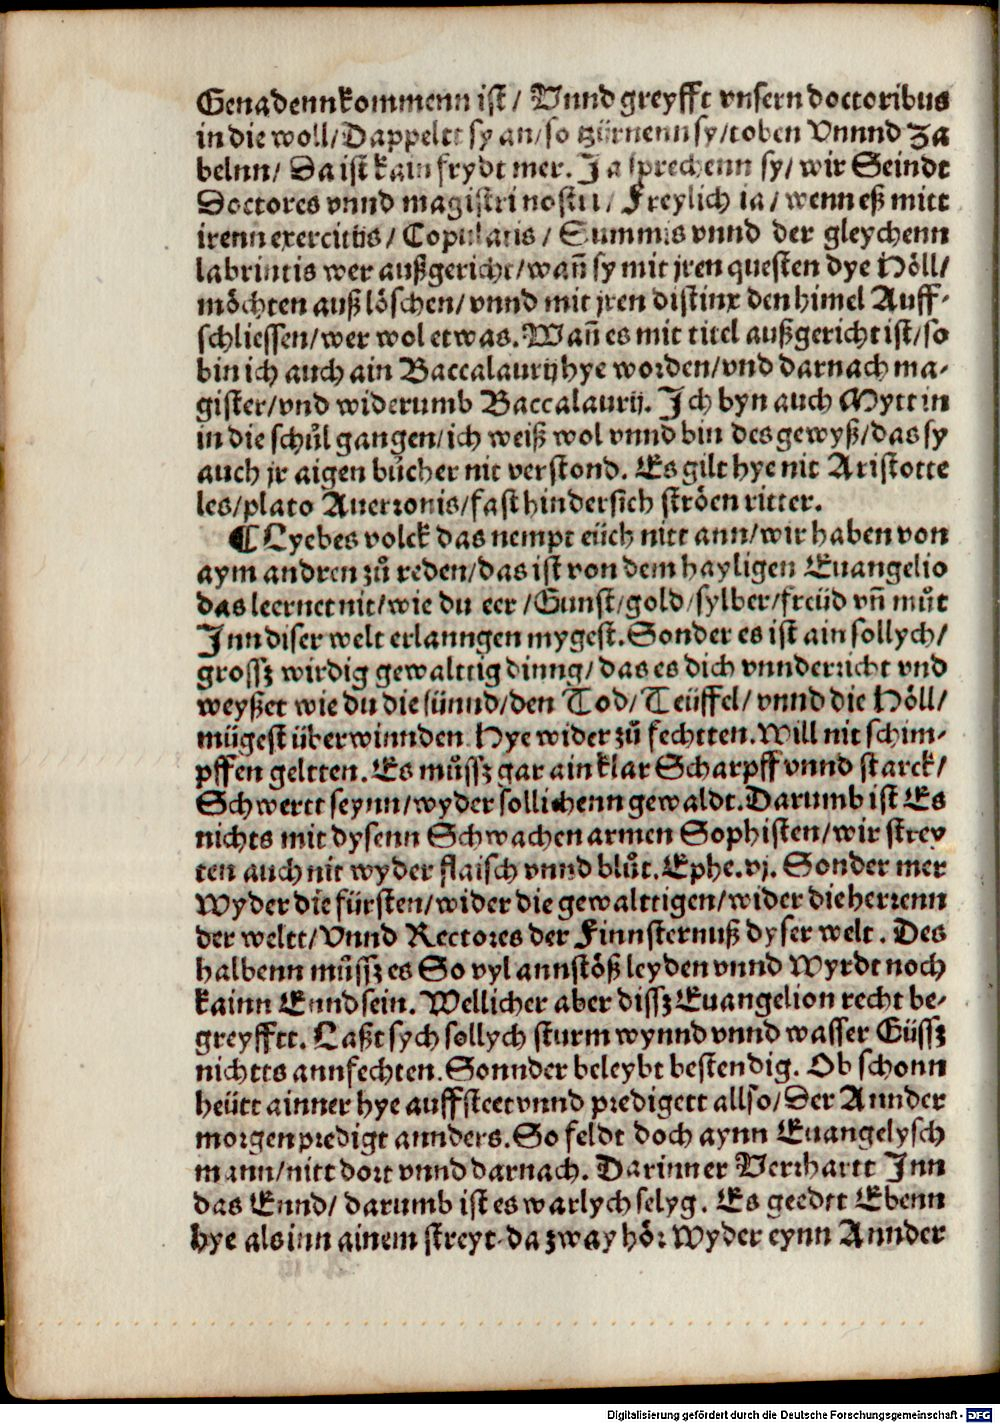 Genadenn kommenn ist / Vnnd greyfft vnsern doctoribus
in die woll / Dappelt sy an / so zürnenn sy / toben Vnnnd Za
belnn / Da ist kain frydt mer. Ja sprechenn sy / wir Seindt
Doctores vnnd magistri nostri / Freylich ia / wenn eß mitt
irenn exercitiis / Copulatis / Summis vnnd der gleychenn
labrintis wer außgericht / wañ sy mit jren questen dye Höll /
möchten auß löschen / vnnd mit jren distinx den himel Auff⸗
schliessen / wer wol etwas. Wañ es mit titel außgericht ist / so
bin ich auch ain Baccalaurij hye worden / vnd darnach ma⸗
gister / vnd widerumb Baccalaurij. Jch byn auch Mytt in
in die schůl gangen / ich weiß wol vnnd bin des gewyß / das sy
auch jr aigen bůcher nit verstond. Es gilt hye nit Aristotte
les / plato Auerronis / fast hindersich ströen ritter.
¶ Lyebes volck das nempt eüch nitt ann / wir haben von
aym andren zů reden / das ist von dem hayligen Euangelio
das leernet nit / wie du eer / Gunst / gold / sylber / freüd vñ můt
Jnn diser welt erlanngen mygest. Sonder es ist ain sollych /
grossz wirdig gewalttig dinng / das es dich vnnderricht vnd
weyßet wie du die sünnd / den Tod / Teüffel / vnnd die Höll /
mügest überwinnden. Hye wider zů fechtten. Will nit schim⸗
pffen geltten. Es můssz gar ain klar Scharpff vnnd starck /
Schwertt seynn / wyder sollichenn gewaldt. Darumb ist Es
nichts mit dysenn Schwachen armen Sophisten / wir strey
ten auch nit wyder flaisch vnnd blůt. Ephe. vj. Sonder mer
Wyder die fürsten / wider die gewalttigen / wider die herrenn
der weltt / Vnnd Rectores der Finnsternuß dyser welt. Des
halbenn můssz es So vyl annstöß leyden vnnd Wyrdt noch
kainn Ennd sein. Wellicher aber dissz Euangelion recht be⸗
greyfftt. Laßt sych sollych sturm wynnd vnnd wasser Güssz
nichtts annfechten. Sonnder beleybt bestendig. Ob schonn
heütt ainner hye auff steet vnnd predigett allso / Der Annder
morgen predigt annders. So feldt doch aynn Euangelysch
mann / nitt dort vnnd darnach. Darinner Verrhartt Jnn
das Ennd / darumb ist es warlych selyg. Es geedtt Ebenn
hye als inn ainem streyt da zway hör Wyder eynn Annder
Digitalisierung gefördert durch die Deutsche Forschungsgemeinschaft - DFG